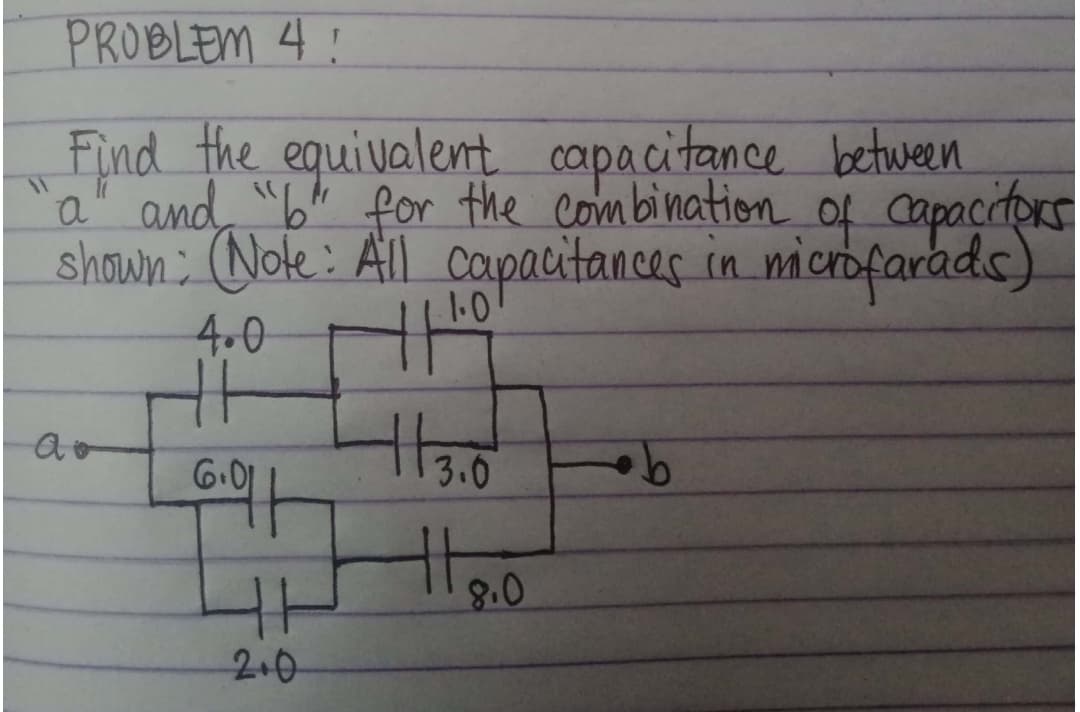 PROBLEM 4 :
Find the equivalent capacitance between
"a" and "b" for the combination of capacitors
shown: (Note: All capacitances in microfarads)
1.0
4.0
a
6.0
3.0
b
8.0
2.0